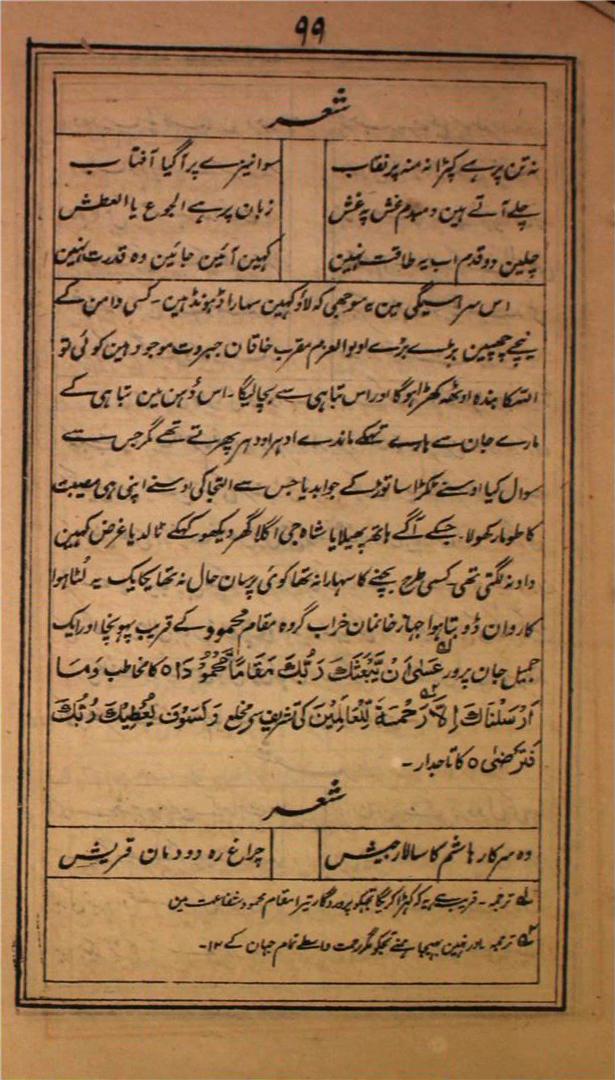 ۹۹
شعر
نہ تن پر ہے کپڑا نہ منہ پر نقاب سوا نیزے پر آ گیا آفتاب
چلے آتے ہین دمبدم غش پہ غش زبان پر ہے الجوع یا العطش
چلین دو قدم اب یہ طاقت نہین کہین آئین جائین وہ قدرت نہین
اس سراسیمگی مین یہ سوجھی کہ لاؤ کہین سہارا ڈہونڈہین۔ کسی دامن کے
نیچے چھپین بڑے بڑے اولوالعزم مقرب خاقان جبروت موجود ہین کوئی تو
اللہ کا بندہ اوٹھ کھڑا ہوگا اور اس تباہی سے بچا لیگا۔ اس دُہن مین تباہی کے
مارے جان سے ہارے تھکے ماندے ادہر اودہر پھرتے تھے مگر جس سے
سوال کیا اوسنے ٹکڑا سا توڑ کے جواب دیا جس سے التجا کی اوسنے اپنی ہی مصیبت
کا طومار کھولا۔ جسکے آگے ہاتھ پھیلایا شاہ جی اگلا گھر دیکھو کہکے ٹالدیا غرض کہین
داو نہ لگتی تھی۔ کسی طرح بچنے کا سہارا نہ تھا کوئی پرسان حال نہ تھا یکایک یہ لُٹا ہوا
کاروان ڈوبتا ہوا جہاز خانمان خراب گروہ مقام محمود کے قریب پہونچا اور ایک
جمیل جان پرور عَسٰی اَنْ یَّبْعَثَکَ رَبُّکَ مَقَامًا مَّحْمُوْدًا ۵ کا مخاطب وَمَا
اَرْسَلْنَاکَ اِلَّا رَحْمَۃً لِّلْعَالَمِیْنَ کی تشریف سے مخلع وَلَسَوْفَ یُعْطِیْکَ رَبُّکَ
فَتَرْضٰی ۵ کا تاجدار۔
شعر
وہ سرکار ہاشم کا سالار جیش چراغ رہ دودمان قریش
لہ ترجمہ۔ قریب ہے یہ کہ کھڑا کریگا تجھکو پروردگار تیرا مقام محمود شفاعت مین
ترجمہ۔ اور نہین بھیجا ہمنے تجھکو مگر رحمت واسطے تمام جہان کے ۱۲۔